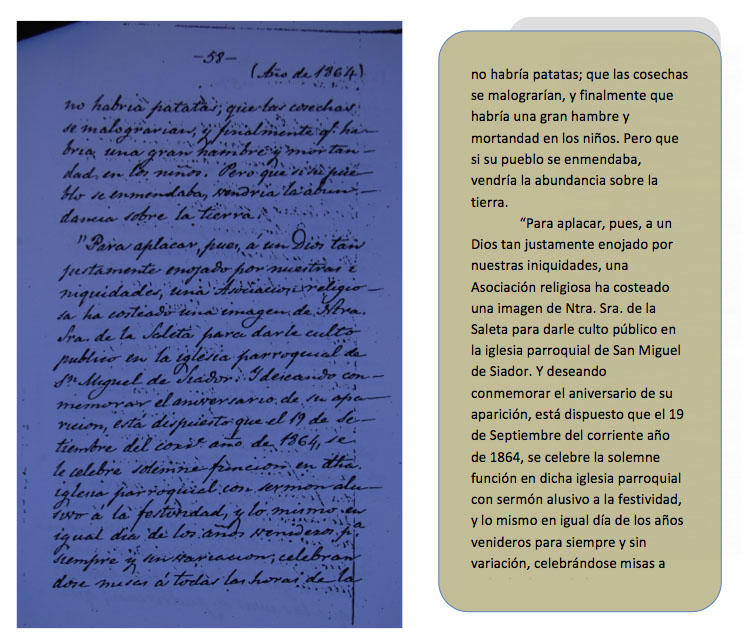 —58—
(Año de 1864)
no habria patatas; que las cosechas
se malograrian, y finalmente qe. ha-
bria una gran hambre y mortan-
dad en los niños. Pero que si su pue-
blo se enmendaba, vendria la abun-
dancia sobre la tierra.
"Para aplacar, pues, á un Dios tan
justamente enojado por nuestras i-
niquidades, una Asociacion religio-
sa ha costeado una imagen de Ntra.
Sra. de la Saleta para darle culto
publico en la iglesia parroquial de
Sn. Miguel de Siador. Y deseando con-
memorar el aniversario de su apa-
ricion, está dispuesto que el 19 de Se-
tiembre del corrte. año de 1864, se
le celebre solemne funcion en dha.
iglesia parroquial con sermon alu-
sivo á la festividad, y lo mismo en
igual dia de los años venideros pa.
siempre y sin variacion, celebran
dose misas á todas las horas de la
no habría patatas; que las cosechas
se malograrían, y finalmente que
habría una gran hambre y
mortandad en los niños. Pero que
si su pueblo se enmendaba,
vendría la abundancia sobre la
tierra.
“Para aplacar, pues, a un
Dios tan justamente enojado por
nuestras iniquidades, una
Asociación religiosa ha costeado
una imagen de Ntra. Sra. de la
Saleta para darle culto público en
la iglesia parroquial de San Miguel
de Siador. Y deseando
conmemorar el aniversario de su
aparición, está dispuesto que el 19
de Septiembre del corriente año
de 1864, se celebre la solemne
función en dicha iglesia parroquial
con sermón alusivo a la festividad,
y lo mismo en igual día de los años
venideros para siempre y sin
variación, celebrándose misas a